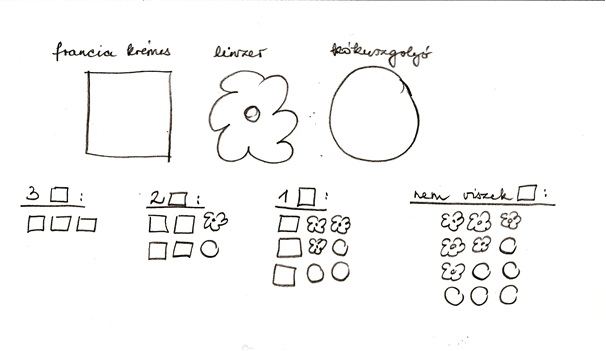 francia krémes linzer kókuszgolyó
3 □ : 2 □ : 1 □ : nem viszek □ :